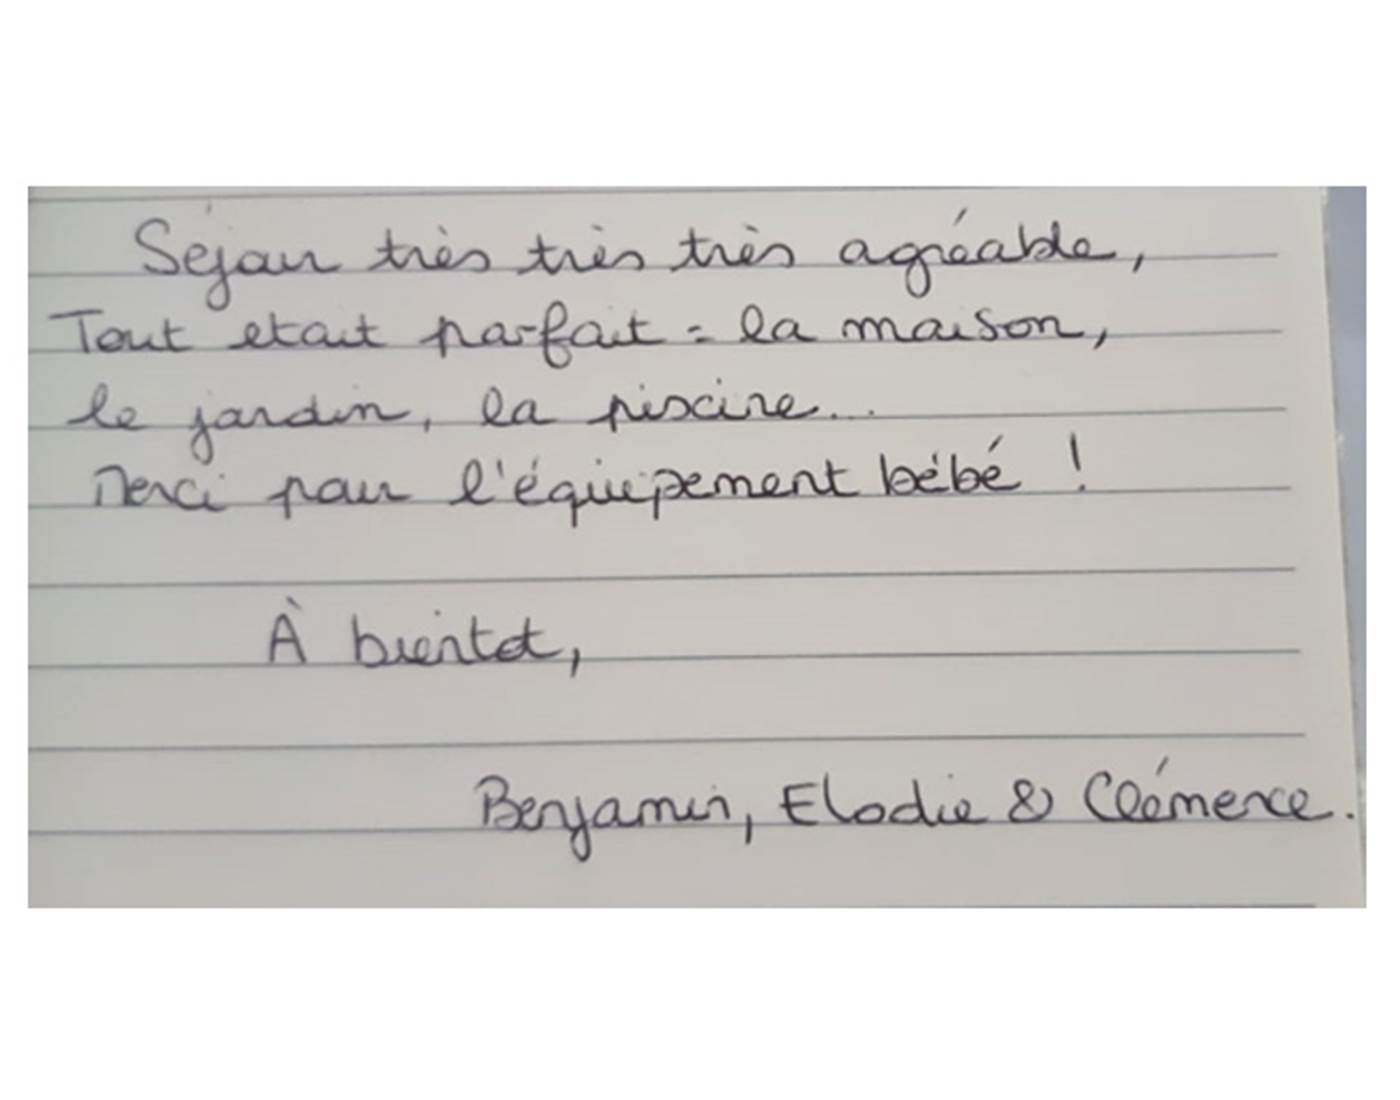 Séjour très très très agréable,
Tout etait parfait : la maison,
le jardin, la piscine...
Merci pour l'équipement bébé !
À bientot,
Benjamin, Elodie & Clémence.